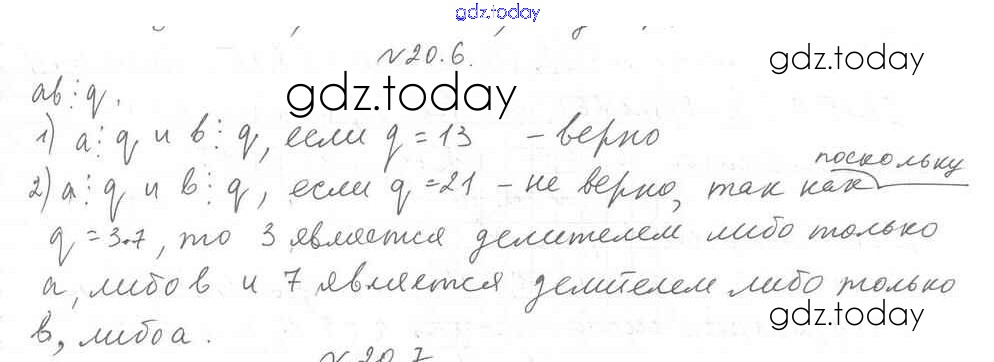 gdz.today
№20.6.
gdz.today
ab⋮q.
gdz.today
1) a⋮q и b⋮q, если q=13 – верно
поскольку
2) a⋮q и b⋮q, если q=21 – не верно, так как
q=3·7, то 3 является делителем либо только
a, либо b и 7 является делителем либо только
gdz.today
b, либо a.
№20.7